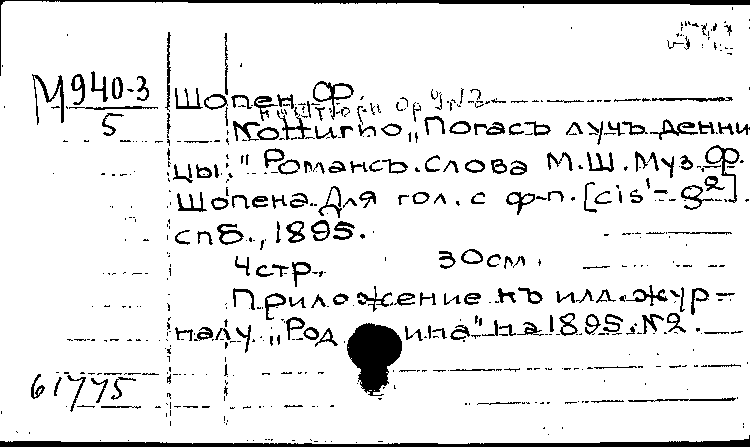 М940-3
5
Шопен Ф.
Ноктюрн ор 9 №2
Notturno "Погасъ лучъ денни
цы." Романсъ. Слова М.Ш. Муз. Ф.
Шопена. Для гол. с ф-п. [cis¹-g²].
спб., 1895.
4стр., 30см.
Приложение къ илл. жур-
налу "Родина" на 1895. №2.
61775